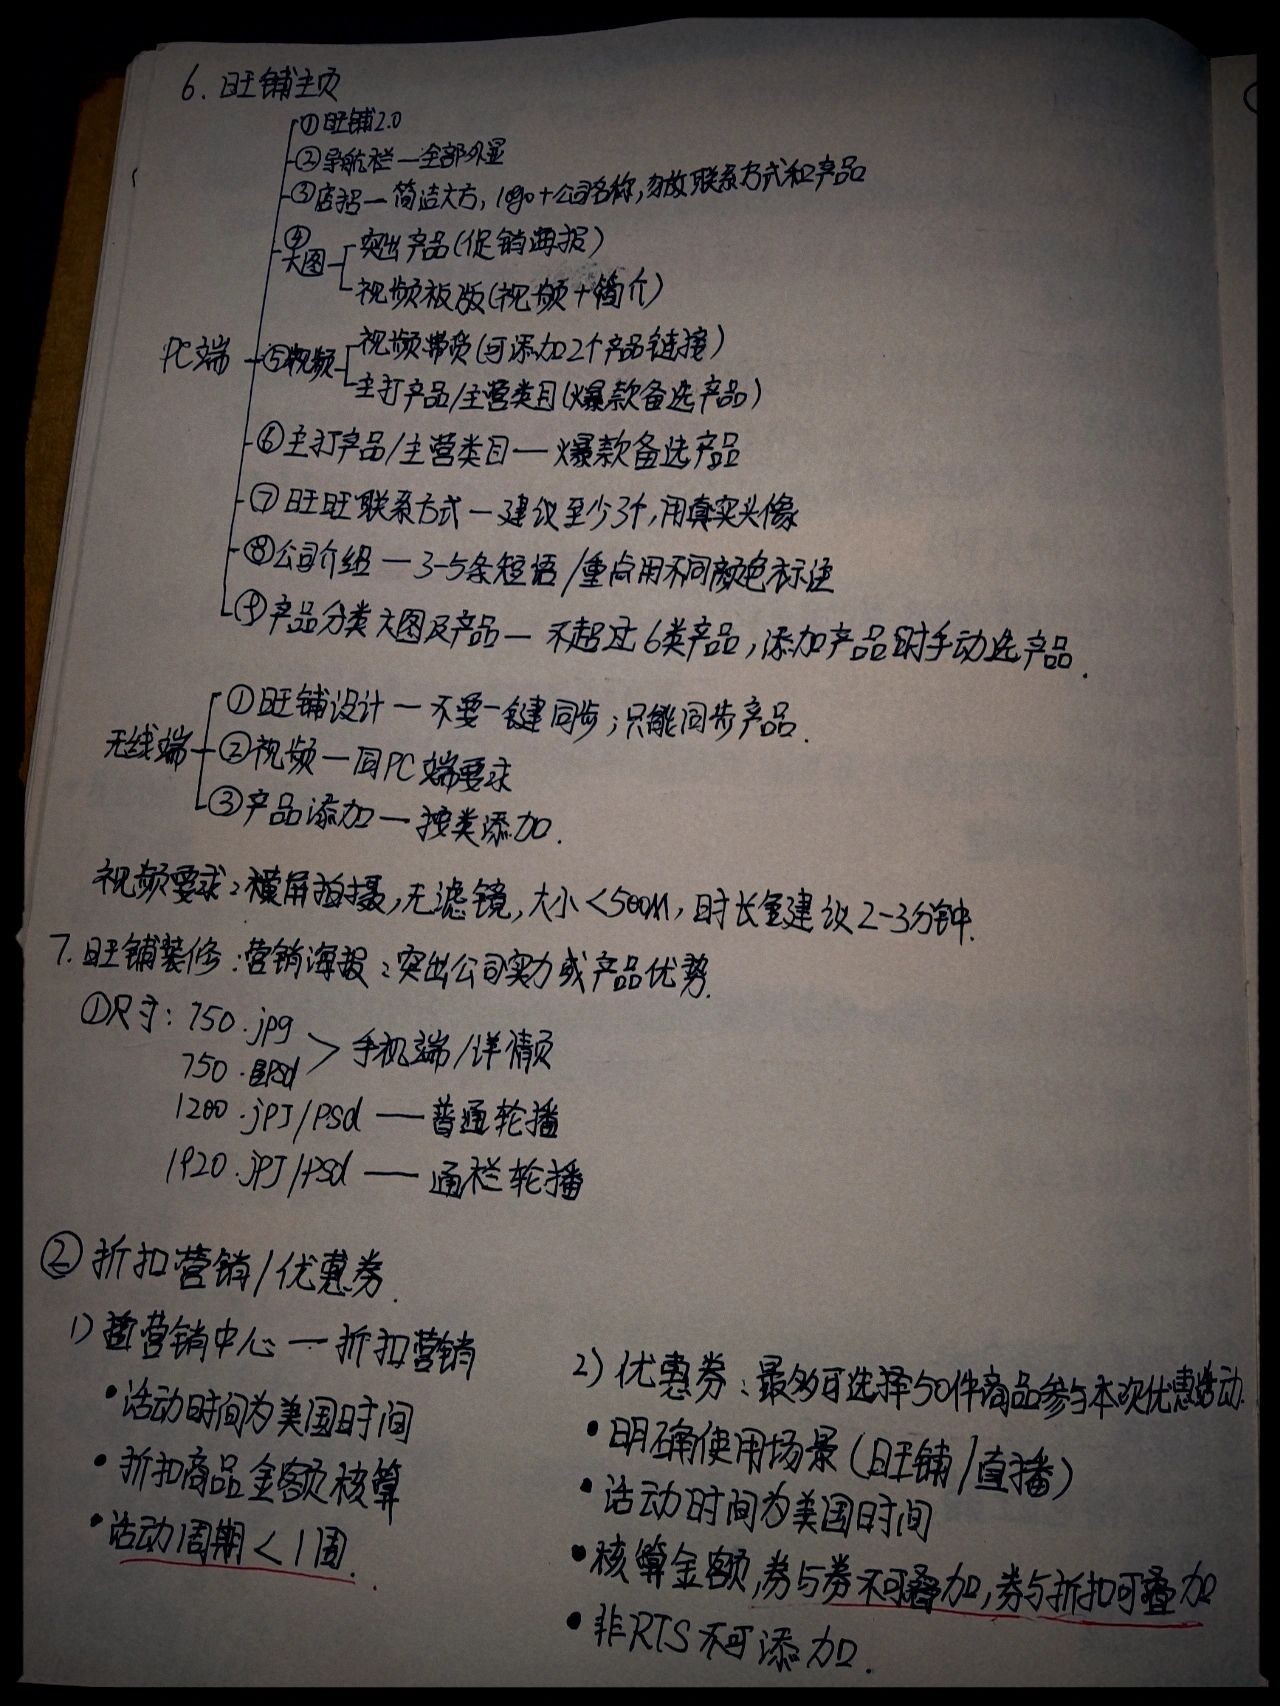 6. 旺铺主页
①旺铺2.0
②导航栏—全部外显
③店招—简洁大方, logo+公司名称, 勿放联系方式和产品
④大图 突出产品(促销海报)
视频板版(视频+简介)
PC端 ⑤视频 视频带货(可添加2个产品链接)
主打产品/主营类目(爆款备选产品)
⑥主打产品/主营类目—爆款备选产品
⑦旺旺联系方式—建议至少3个, 用真实头像
⑧公司介绍—3-5条短语/重点用不同颜色标注
产品分类大图及产品—不超过6类产品, 添加产品时手动选产品.
①旺铺设计—不要一键同步; 只能同步产品.
无线端 ②视频—同PC端要求
③产品添加—按类添加.
视频要求: 横屏拍摄, 无滤镜, 大小<500M, 时长建议2-3分钟.
7. 旺铺装修: 营销海报: 突出公司实力或产品优势.
①尺寸: 750.jpg
750.psd > 手机端/详情页
1200.jpg/psd — 普通轮播
1920.jpg/psd — 通栏轮播
②折扣营销/优惠券.
1) 营销中心—折扣营销
•活动时间为美国时间
•折扣商品金额核算
•活动周期<1周.
2) 优惠券: 最多可选择50件商品参与本次优惠活动.
•明确使用场景(旺铺/直播)
•活动时间为美国时间
•核算金额, 券与券不可叠加, 券与折扣可叠加
•非RTS不可添加.